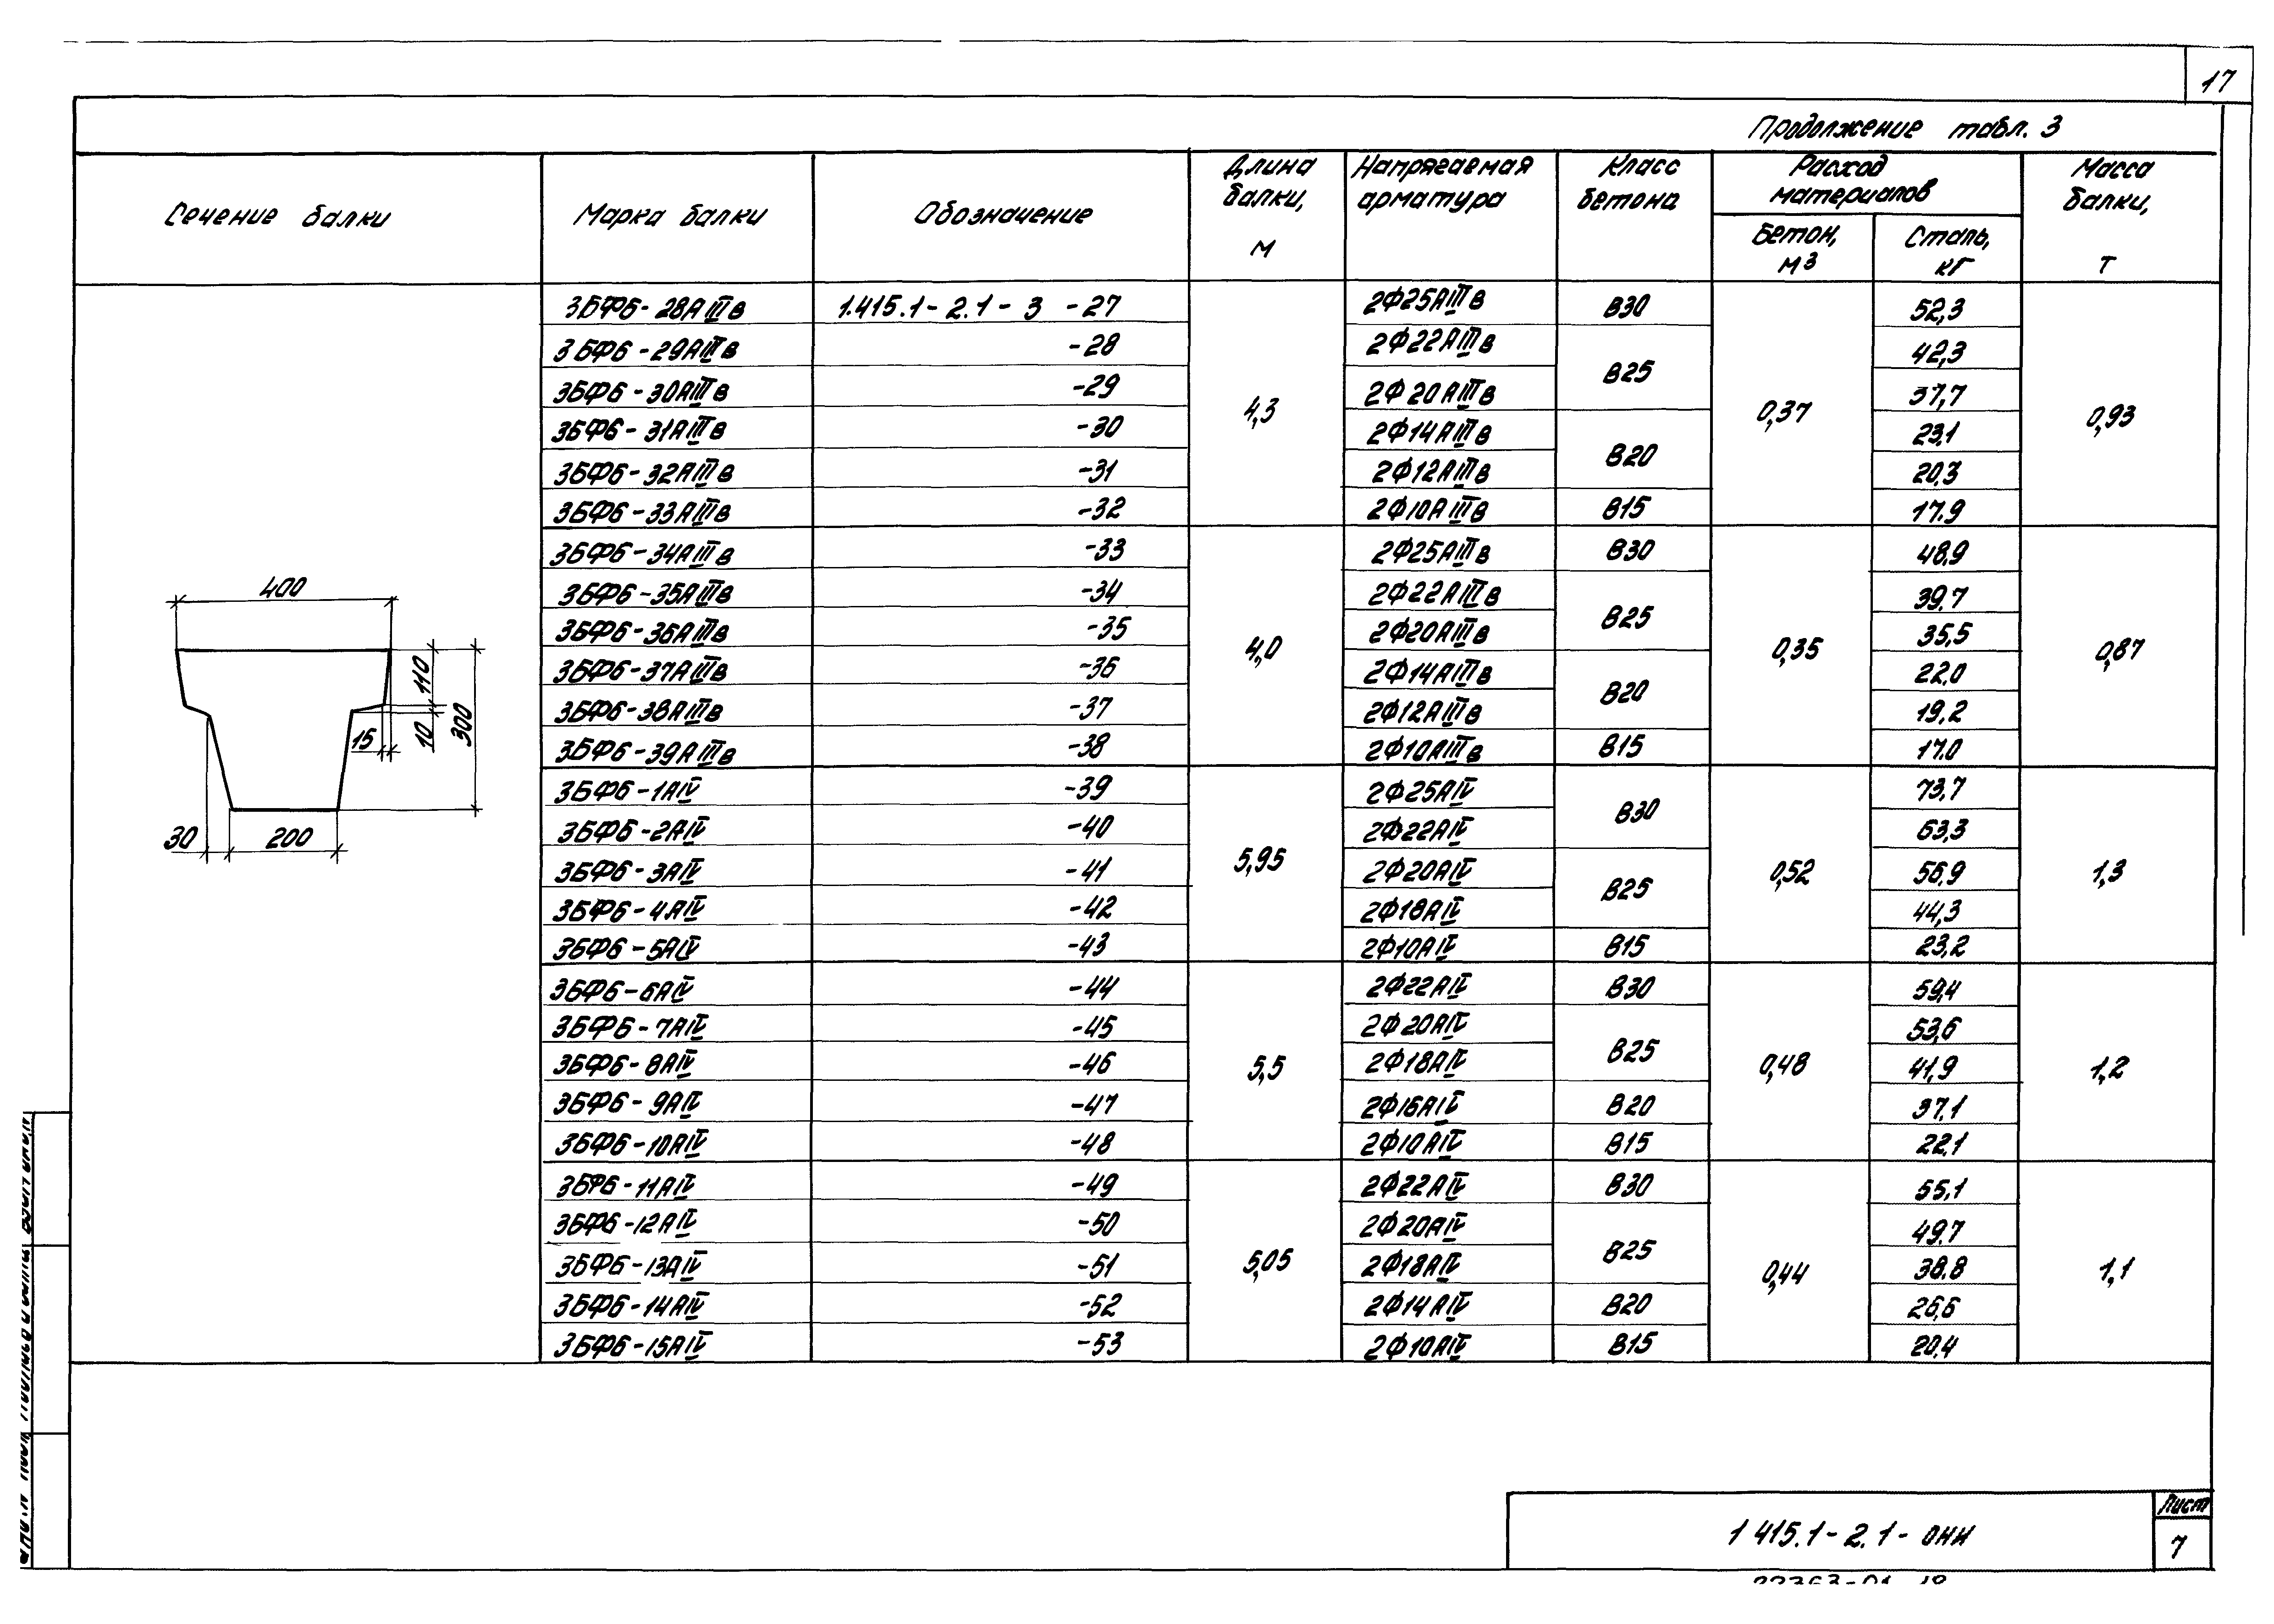 17
Продолжение табл. 3
Сечение балки
Марка балки
Обозначение
Длина балки, м
Напрягаемая арматура
Класс бетона
Расход материалов
Бетон, м3
Сталь, кг
Масса балки, т
3БФ6-28АIIIв 1.415.1-2.1-3 -27 4,3 2Ф25АIIIв В30 0,37 52,3 0,93
3БФ6-29АIIIв -28 2Ф22АIIIв В25 42,3
3БФ6-30АIIIв -29 2Ф20АIIIв 37,7
3БФ6-31АIIIв -30 2Ф14АIIIв В20 23,1
3БФ6-32АIIIв -31 2Ф12АIIIв 20,3
3БФ6-33АIIIв -32 2Ф10АIIIв В15 17.9
3БФ6-34АIIIв -33 4,0 2Ф25АIIIв В30 0,35 48,9 0,87
3БФ6-35АIIIв -34 2Ф22АIIIв В25 39.7
3БФ6-36АIIIв -35 2Ф20АIIIв 35,5
3БФ6-37АIIIв -36 2Ф14АIIIв В20 22.0
3БФ6-38АIIIв -37 2Ф12АIIIв 19,2
3БФ6-39АIIIв -38 2Ф10АIIIв В15 17.0
3БФ6-1АIV -39 5,95 2Ф25АIV В30 0,52 73,7 1,3
3БФ6-2АIV -40 2Ф22АIV 63,3
3БФ6-3АIV -41 2Ф20АIV В25 56,9
3БФ6-4АIV -42 2Ф18АIV 44,3
3БФ6-5АIV -43 2Ф10АIV В15 23,2
3БФ6-6АIV -44 5,5 2Ф22АIV В30 0,48 59,4 1,2
3БФ6-7АIV -45 2Ф20АIV В25 53,6
3БФ6-8АIV -46 2Ф18АIV 41,9
3БФ6-9АIV -47 2Ф16АIV В20 37,1
3БФ6-10АIV -48 2Ф10АIV В15 22,1
3БФ6-11АIV -49 5,05 2Ф22АIV В30 0,44 55,1 1,1
3БФ6-12АIV -50 2Ф20АIV В25 49.7
3БФ6-13АIV -51 2Ф18АIV 38.8
3БФ6-14АIV -52 2Ф14АIV В20 26,6
3БФ6-15АIV -53 2Ф10АIV В15 20,4
400
110
10
300
15
30
200
1 415.1-2.1-ОНИ
Лист
7